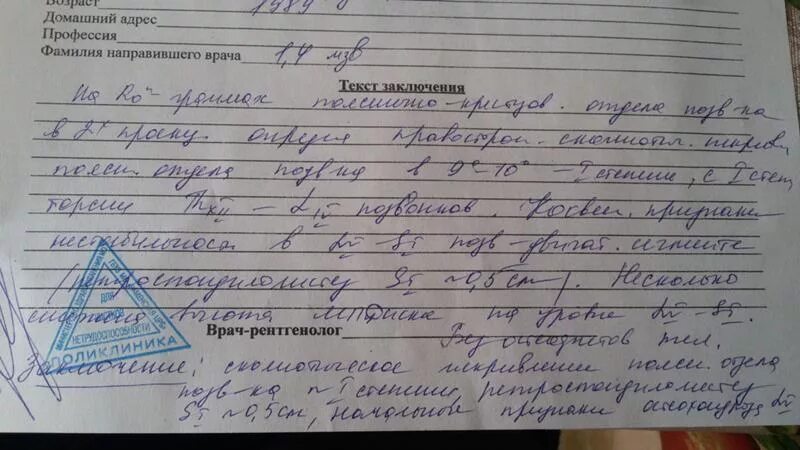 Возраст 1989
Домашний адрес
Профессия
Фамилия направившего врача 1,4 мзв
Текст заключения
На Ro граммах пояснично-крестцов. отдела позв-ка
в 2х проекц. определ правосторон. сколиотич. искривл
поясн. отдела позв-ка в 9°-10° - I степени, с I степ
торсии Th XII - L IV позвонков. Косвен. признаки
нестабильности в L V - S I позв-двигат. сегменте
(ретроспондилолистез S I ~0,5 см). Несколько
снижена высота м/п диска на уровне L V - S I.
Врач-рентгенолог Без остеофитов тел.
Заключение: сколиотическое искривление поясн. отдела
позв-ка I степени, ретроспондилолистез
S I ~0,5 см, начальные признаки остеохондроза L V
ДЛЯ
НЕТРУДОСПОСОБНОСТИ
ПОЛИКЛИНИКА